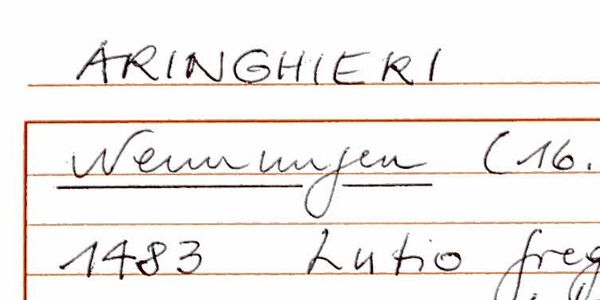 ARINGHIERI
Nennungen (16.
1483 Lutio freg